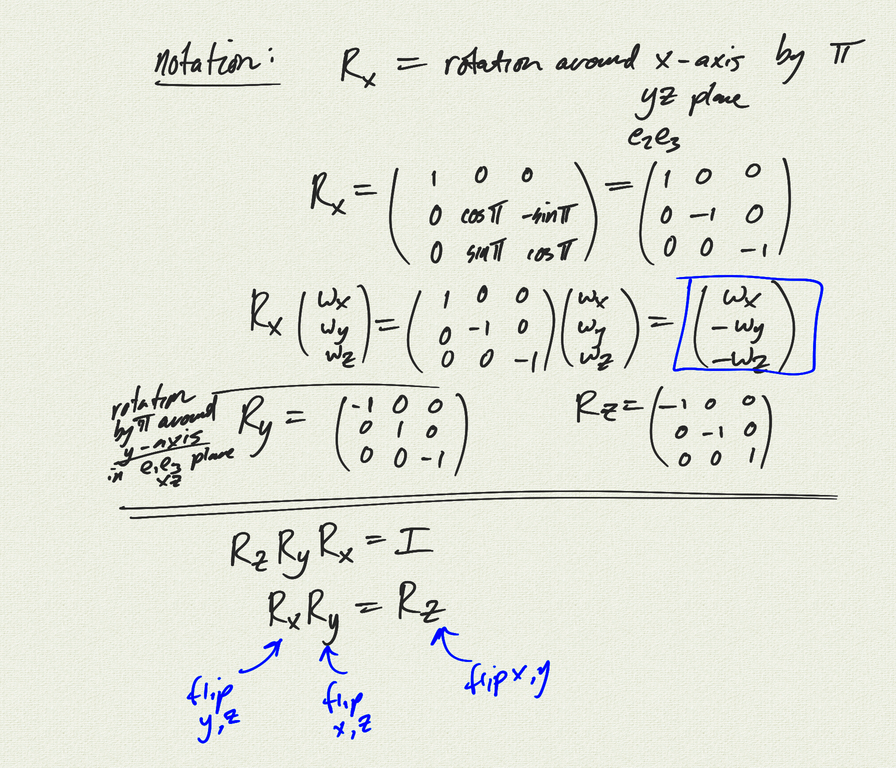 notation: R_x = rotation around x-axis by π
yz plane
e₂e₃
R_x = ( 1 0 0 ; 0 cosπ -sinπ ; 0 sinπ cosπ ) = ( 1 0 0 ; 0 -1 0 ; 0 0 -1 )
R_x ( ωx ; ωy ; ωz ) = ( 1 0 0 ; 0 -1 0 ; 0 0 -1 ) ( ωx ; ωy ; ωz ) = ( ωx ; -ωy ; -ωz )
rotation
by π around
y-axis
in e₁e₃ plane
xz
R_y = ( -1 0 0 ; 0 1 0 ; 0 0 -1 )
R_z = ( -1 0 0 ; 0 -1 0 ; 0 0 1 )
R_z R_y R_x = I
R_x R_y = R_z
flip
y,z
flip
x,z
flip x,y